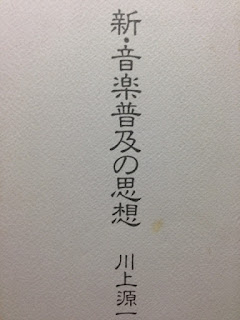 新・音楽普及の思想
川上源一